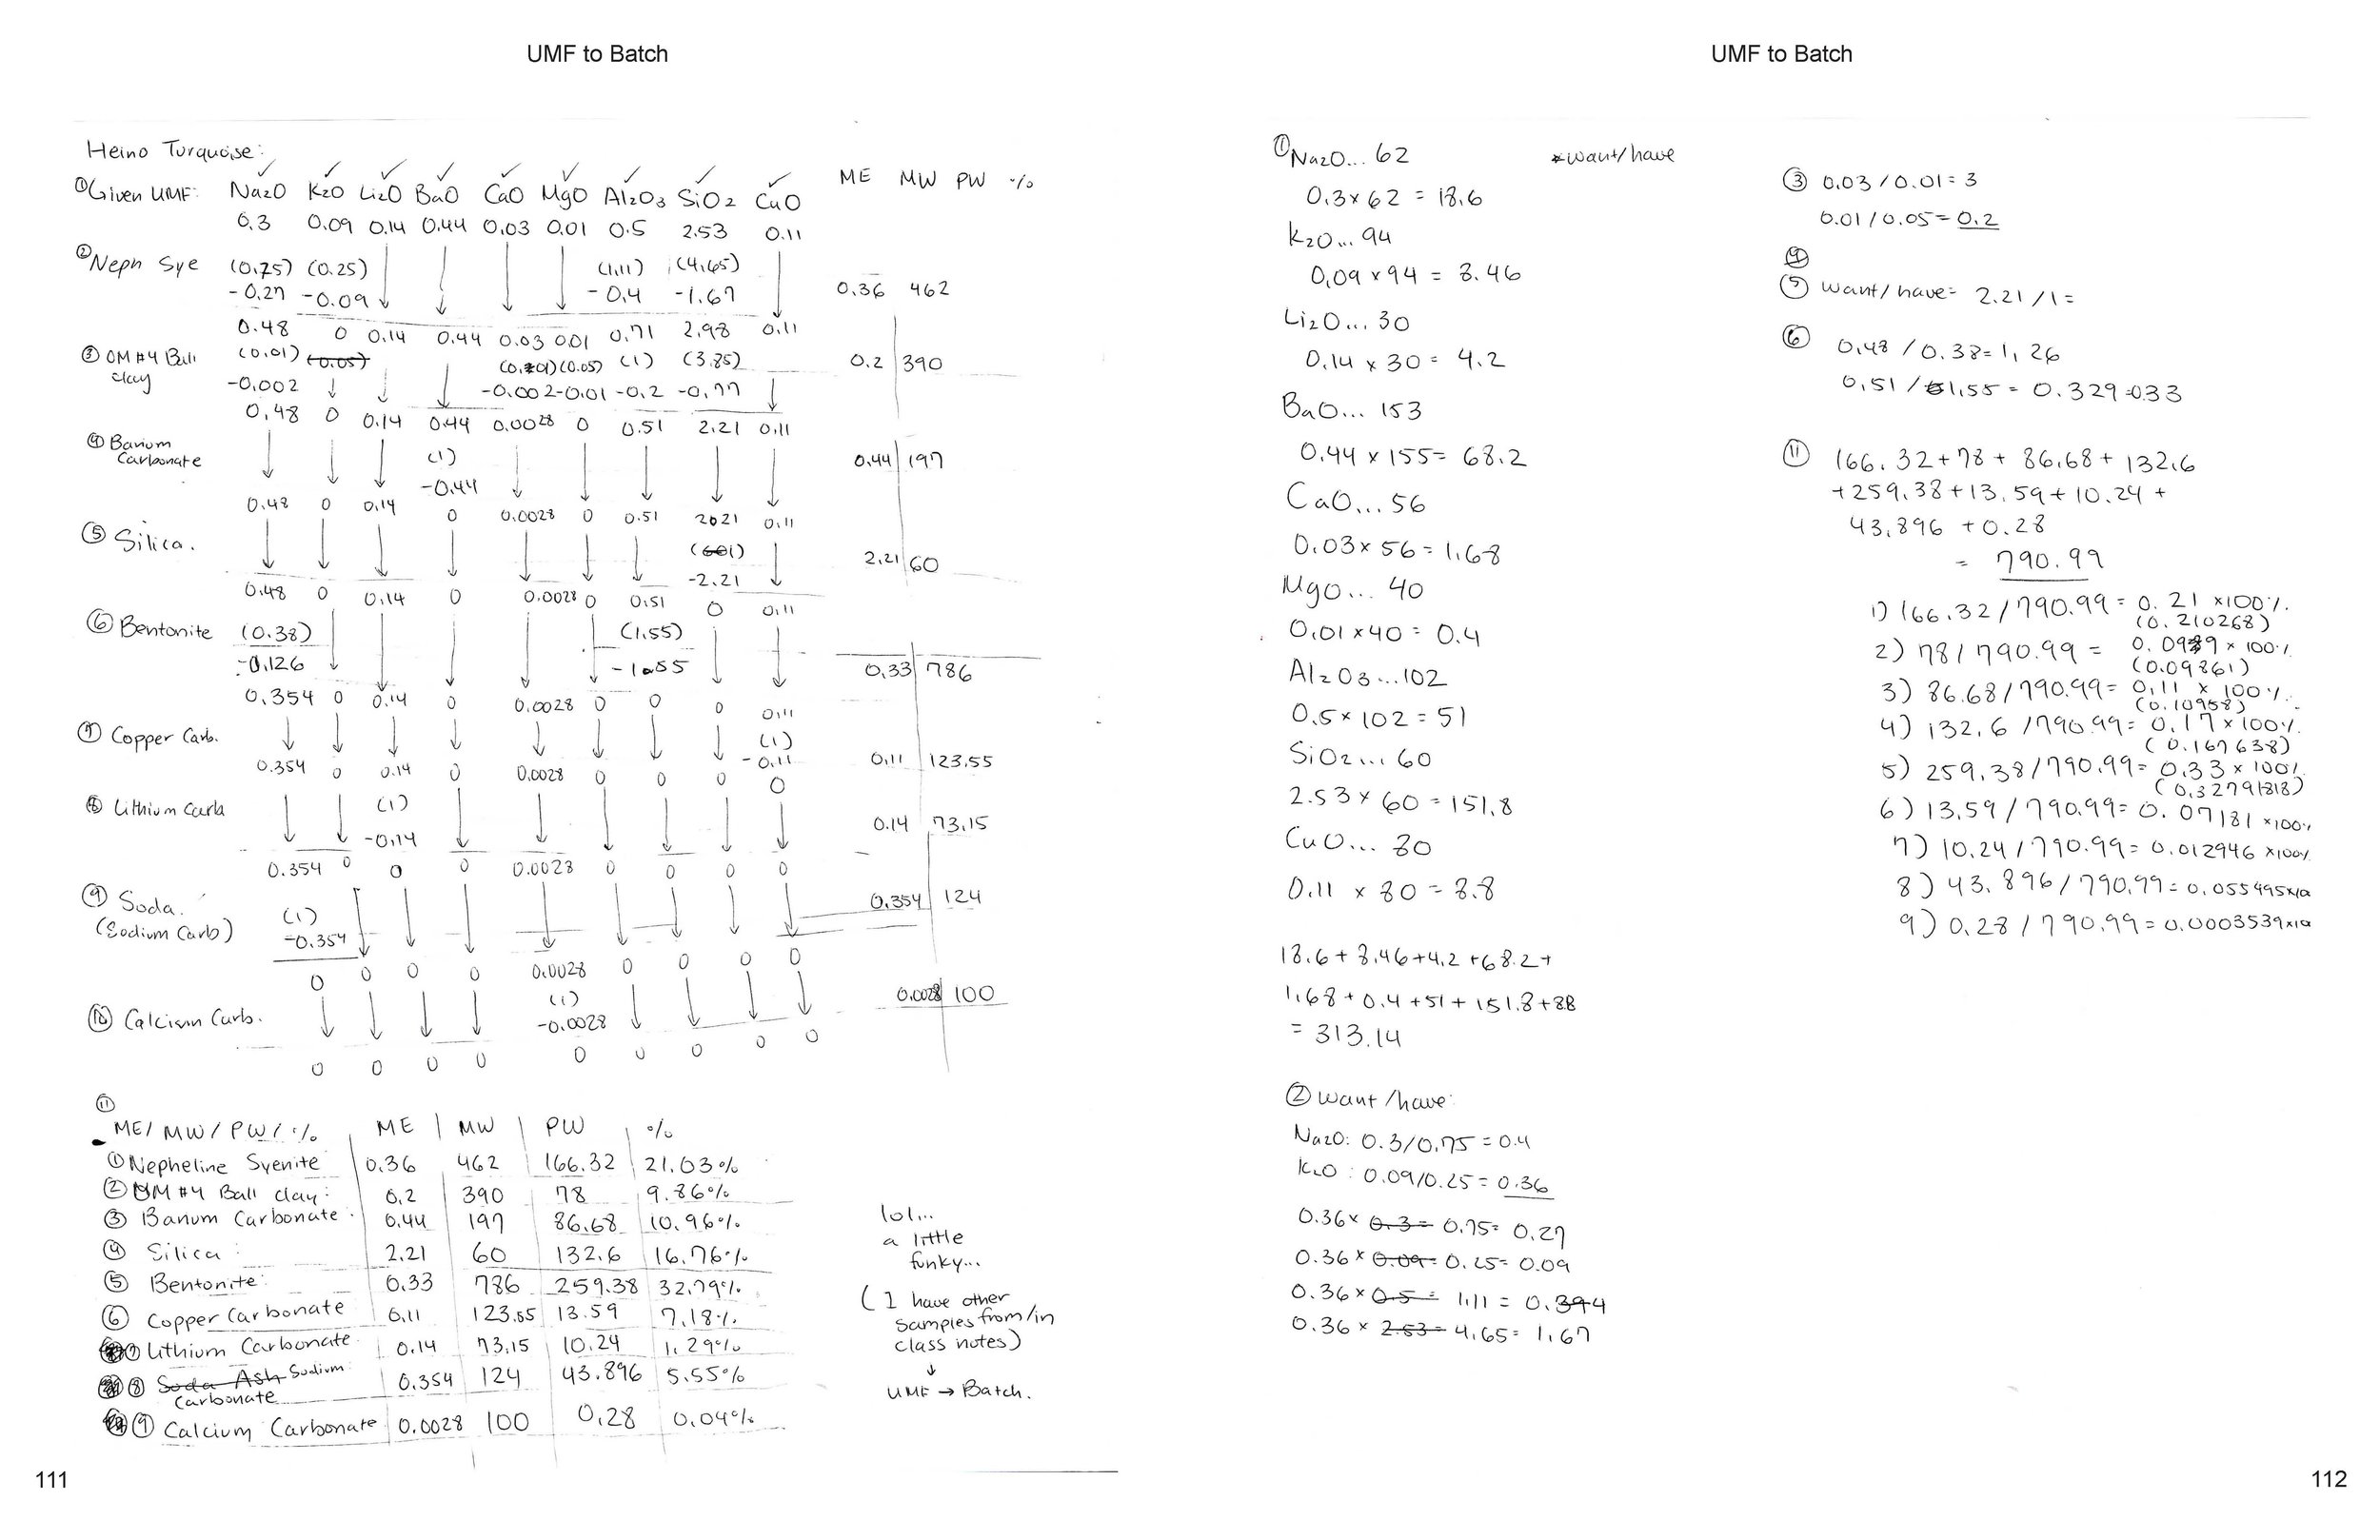 UMF to Batch
Heino Turquoise:
①Given UMF: Na2O K2O Li2O BaO CaO MgO Al2O3 SiO2 CuO ME MW PW %
0.3 0.09 0.14 0.44 0.03 0.01 0.5 2.53 0.11
②Neph Sye (0.75) (0.25) (1.11) (4.65)
-0.27 -0.09 -0.4 -1.67 0.36 462
0.48 0 0.14 0.44 0.03 0.01 0.71 2.98 0.11
③ OM #4 Ball Clay (0.01) (0.05) (0.01) (0.05) (1) (3.85) 0.2 390
-0.002 -0.002 -0.01 -0.2 -0.77
0.48 0 0.14 0.44 0.0028 0 0.51 2.21 0.11
④ Barium Carbonate (1) 0.44 197
-0.44
0.48 0 0.14 0 0.0028 0 0.51 2.21 0.11
⑤ Silica. (1) 2.21 60
-2.21
0.48 0 0.14 0 0.0028 0 0.51 0 0.11
⑥ Bentonite (0.38) (1.55)
-0.126 -1.55 0.33 786
0.354 0 0.14 0 0.0028 0 0 0 0.11
⑦ Copper Carb. (1)
-0.11 0.11 123.55
0.354 0 0.14 0 0.0028 0 0 0 0
⑧ Lithium Carb (1)
-0.14 0.14 73.15
0.354 0 0 0 0.0028 0 0 0 0
⑨ Soda. (1) 0.354 124
(Sodium Carb) -0.354
0 0 0 0 0.0028 0 0 0 0
⑩ Calcium Carb. (1) 0.0028 100
-0.0028
0 0 0 0 0 0 0 0 0
⑪
ME/ MW/ PW/ % ME MW PW %
①Nepheline Syenite 0.36 462 166.32 21.03%
②OM #4 Ball Clay: 0.2 390 78 9.86%
③ Barium Carbonate: 0.44 197 86.68 10.96%
④ Silica: 2.21 60 132.6 16.76%
⑤ Bentonite: 0.33 786 259.38 32.79%
⑥ Copper Carbonate 0.11 123.55 13.59 7.18%
⑦ Lithium Carbonate 0.14 73.15 10.24 1.29%
⑧ Soda Ash Sodium Carbonate 0.354 124 43.896 5.55%
⑨ Calcium Carbonate 0.0028 100 0.28 0.04%
lol...
a little
funky...
( I have other
samples from/in
class notes)
↓
UMF → Batch.
111
UMF to Batch
①Na2O... 62
0.3 x 62 = 18.6
K2O... 94
0.09 x 94 = 8.46
Li2O... 30
0.14 x 30 = 4.2
BaO... 153
0.44 x 155 = 68.2
CaO... 56
0.03 x 56 = 1.68
MgO... 40
0.01 x 40 = 0.4
Al2O3...102
0.5 x 102 = 51
SiO2... 60
2.53 x 60 = 151.8
CuO... 80
0.11 x 80 = 8.8
18.6 + 8.46 + 4.2 + 68.2 +
1.68 + 0.4 + 51 + 151.8 + 8.8
= 313.14
② want/have:
Na2O: 0.3/0.75 = 0.4
K2O: 0.09/0.25 = 0.36
0.36 x 0.3 = 0.75 = 0.27
0.36 x 0.09 = 0.25 = 0.09
0.36 x 0.5 = 1.11 = 0.394
0.36 x 2.53 = 4.65 = 1.67
*want/have
③ 0.03/0.01 = 3
0.01/0.05 = 0.2
④
⑤ want/have = 2.21/1 =
⑥ 0.48/0.38 = 1.26
0.51/1.55 = 0.329=0.33
⑪ 166.32 + 78 + 86.68 + 132.6
+ 259.38 + 13.59 + 10.24 +
43.896 + 0.28
= 790.99
1) 166.32/790.99 = 0.21 x100%
(0.210268)
2) 78/790.99 = 0.0989 x 100%
(0.09861)
3) 86.68/790.99 = 0.11 x 100%
(0.10958)
4) 132.6/790.99 = 0.17 x 100%
(0.167638)
5) 259.38/790.99 = 0.33 x 100%
(0.32791818)
6) 13.59/790.99 = 0.07181 x100%
7) 10.24/790.99 = 0.012946 x100%
8) 43.896/790.99 = 0.055495x10
9) 0.28/790.99 = 0.0003539x10
112